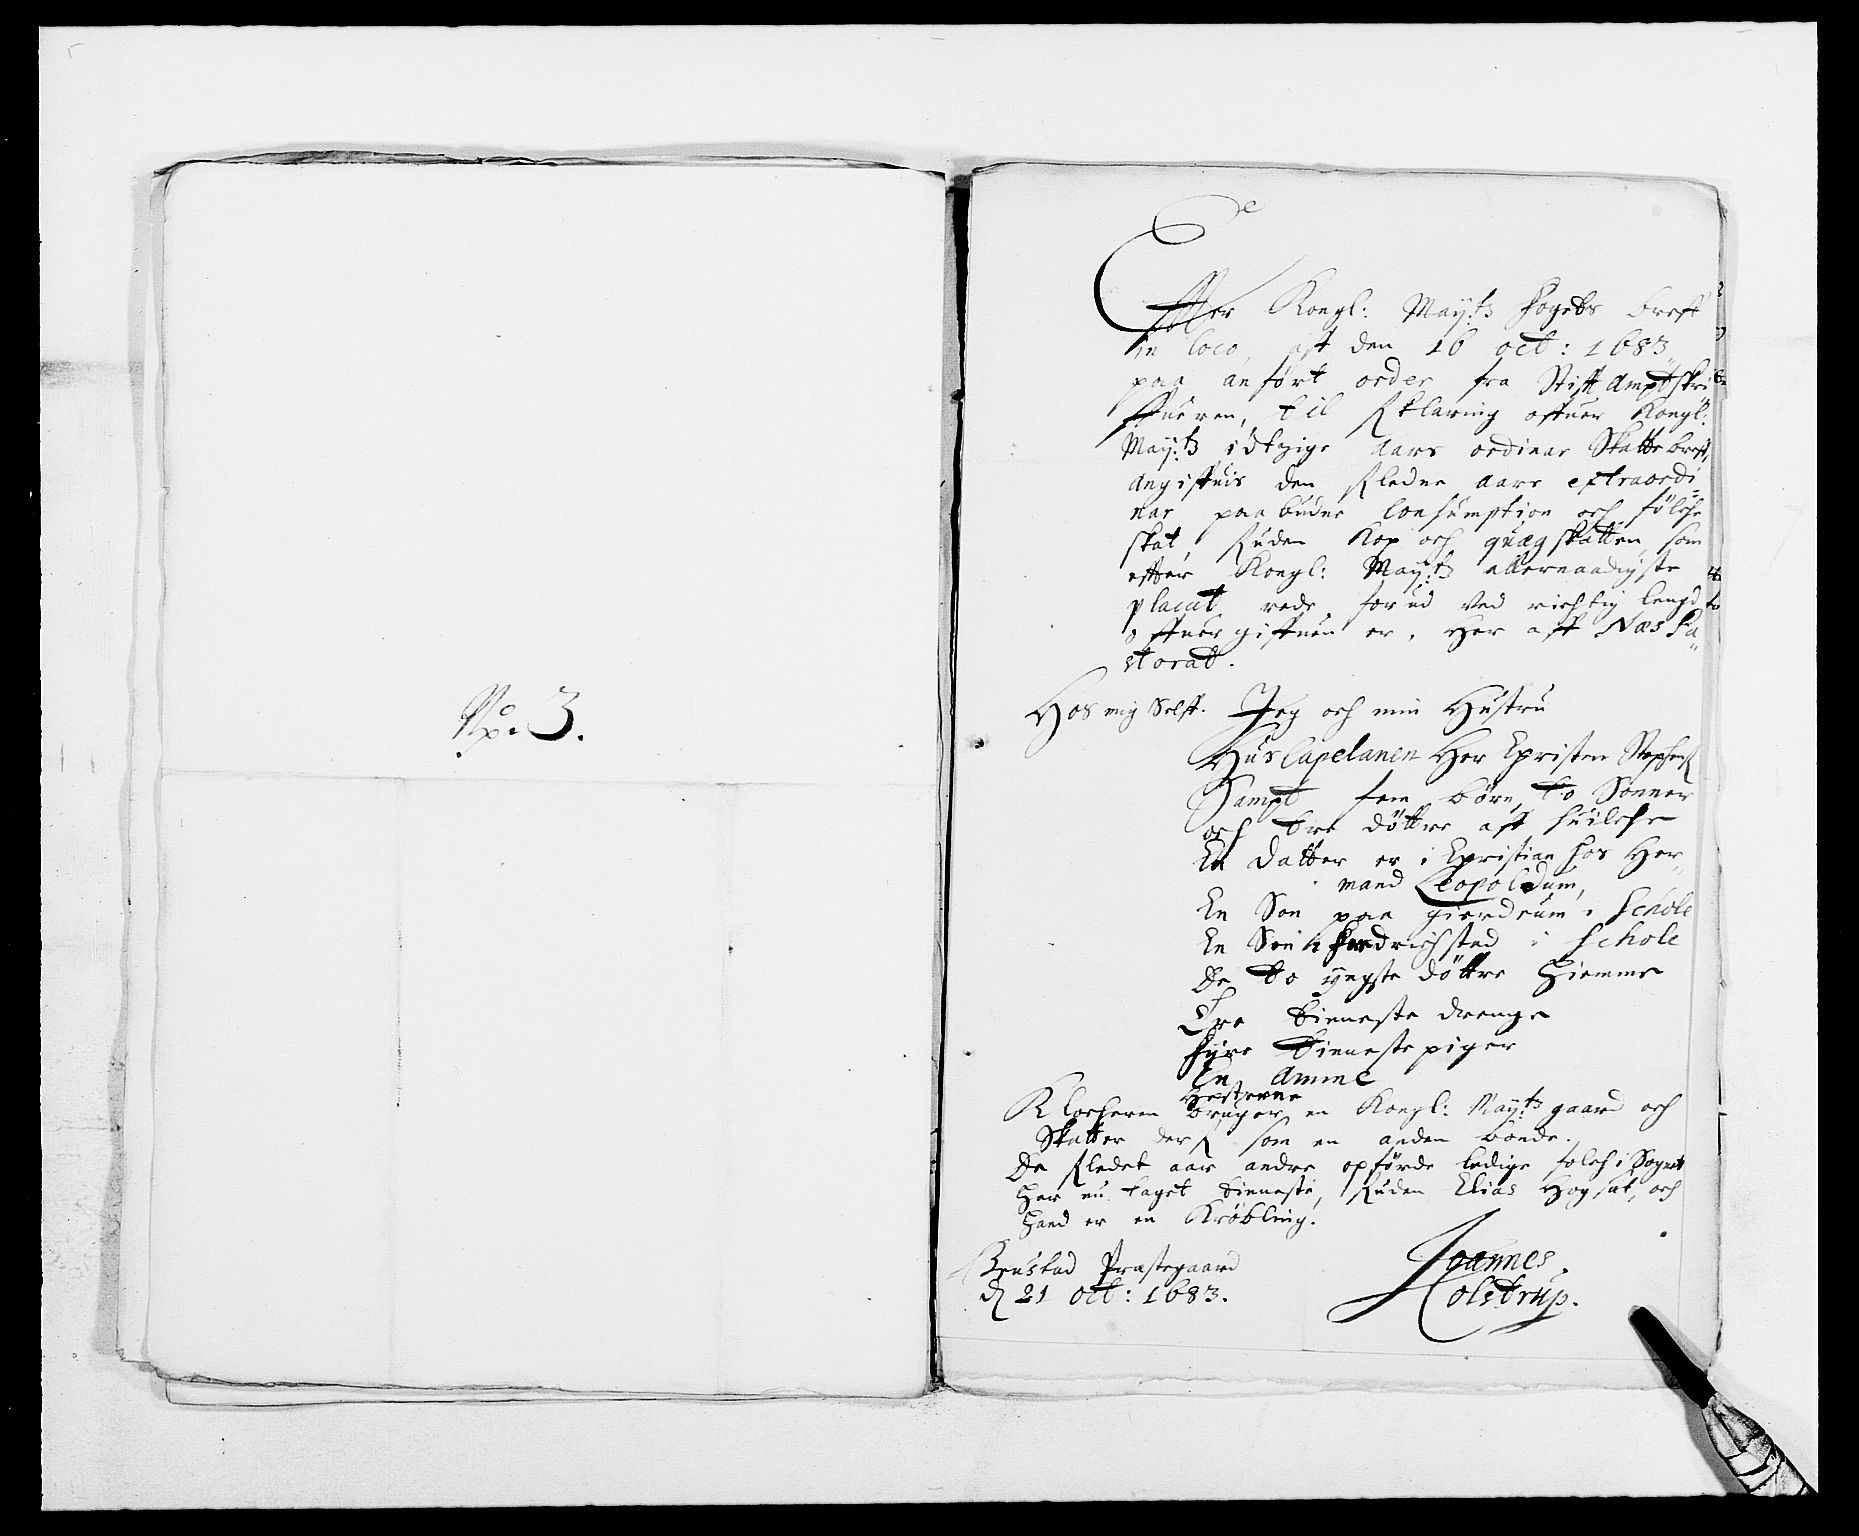 No. 3.
Effter Kongl: Maÿ:tz fogets breff
in loco, aff den 16 oct: 1683
paa anført order fra Stifft Ampt skri
ffueren, til Erklaring offuer Kongl:
Maÿ:tz idtzige aars ordinar Skatte breff,
angiffuis den Afledne aars extraordi
nar paabudne Consumption och fölche
skat, uden Kop och quæg skatten som
effter Kongl: Maÿ:tz allernaadigste
placat rede forud ved richtig lengd
offuergiffuen er. Her aff Næs Pa
storat.
Hos mig Selff. Jeg och min Hustru
Hus Capelanen Her Christen Stephens
Sampt fem börn, to Sönner
och tre döttre aff huilche
En Datter er i Christian hos Her
mand Leopoldum,
En Søn paa gierdrum i Schole
En Søn i fredrichstad i Schole
De to yngste döttre hiemme
Tre tieneste drenge
fyre tieneste piger
En Amme
Klocheren Hesterne bruger en Kongl: Maÿ:tz gaard och
Skatter der som en anden bonde.
De afledet aar andre opförde ledige folch i Sognet
har nu taget tieneste, uden Elias Hogset, och
hand er en Kröbling.
Benstad Præstegaard
d 21 Oct: 1683.
Joannes
Colstrup.